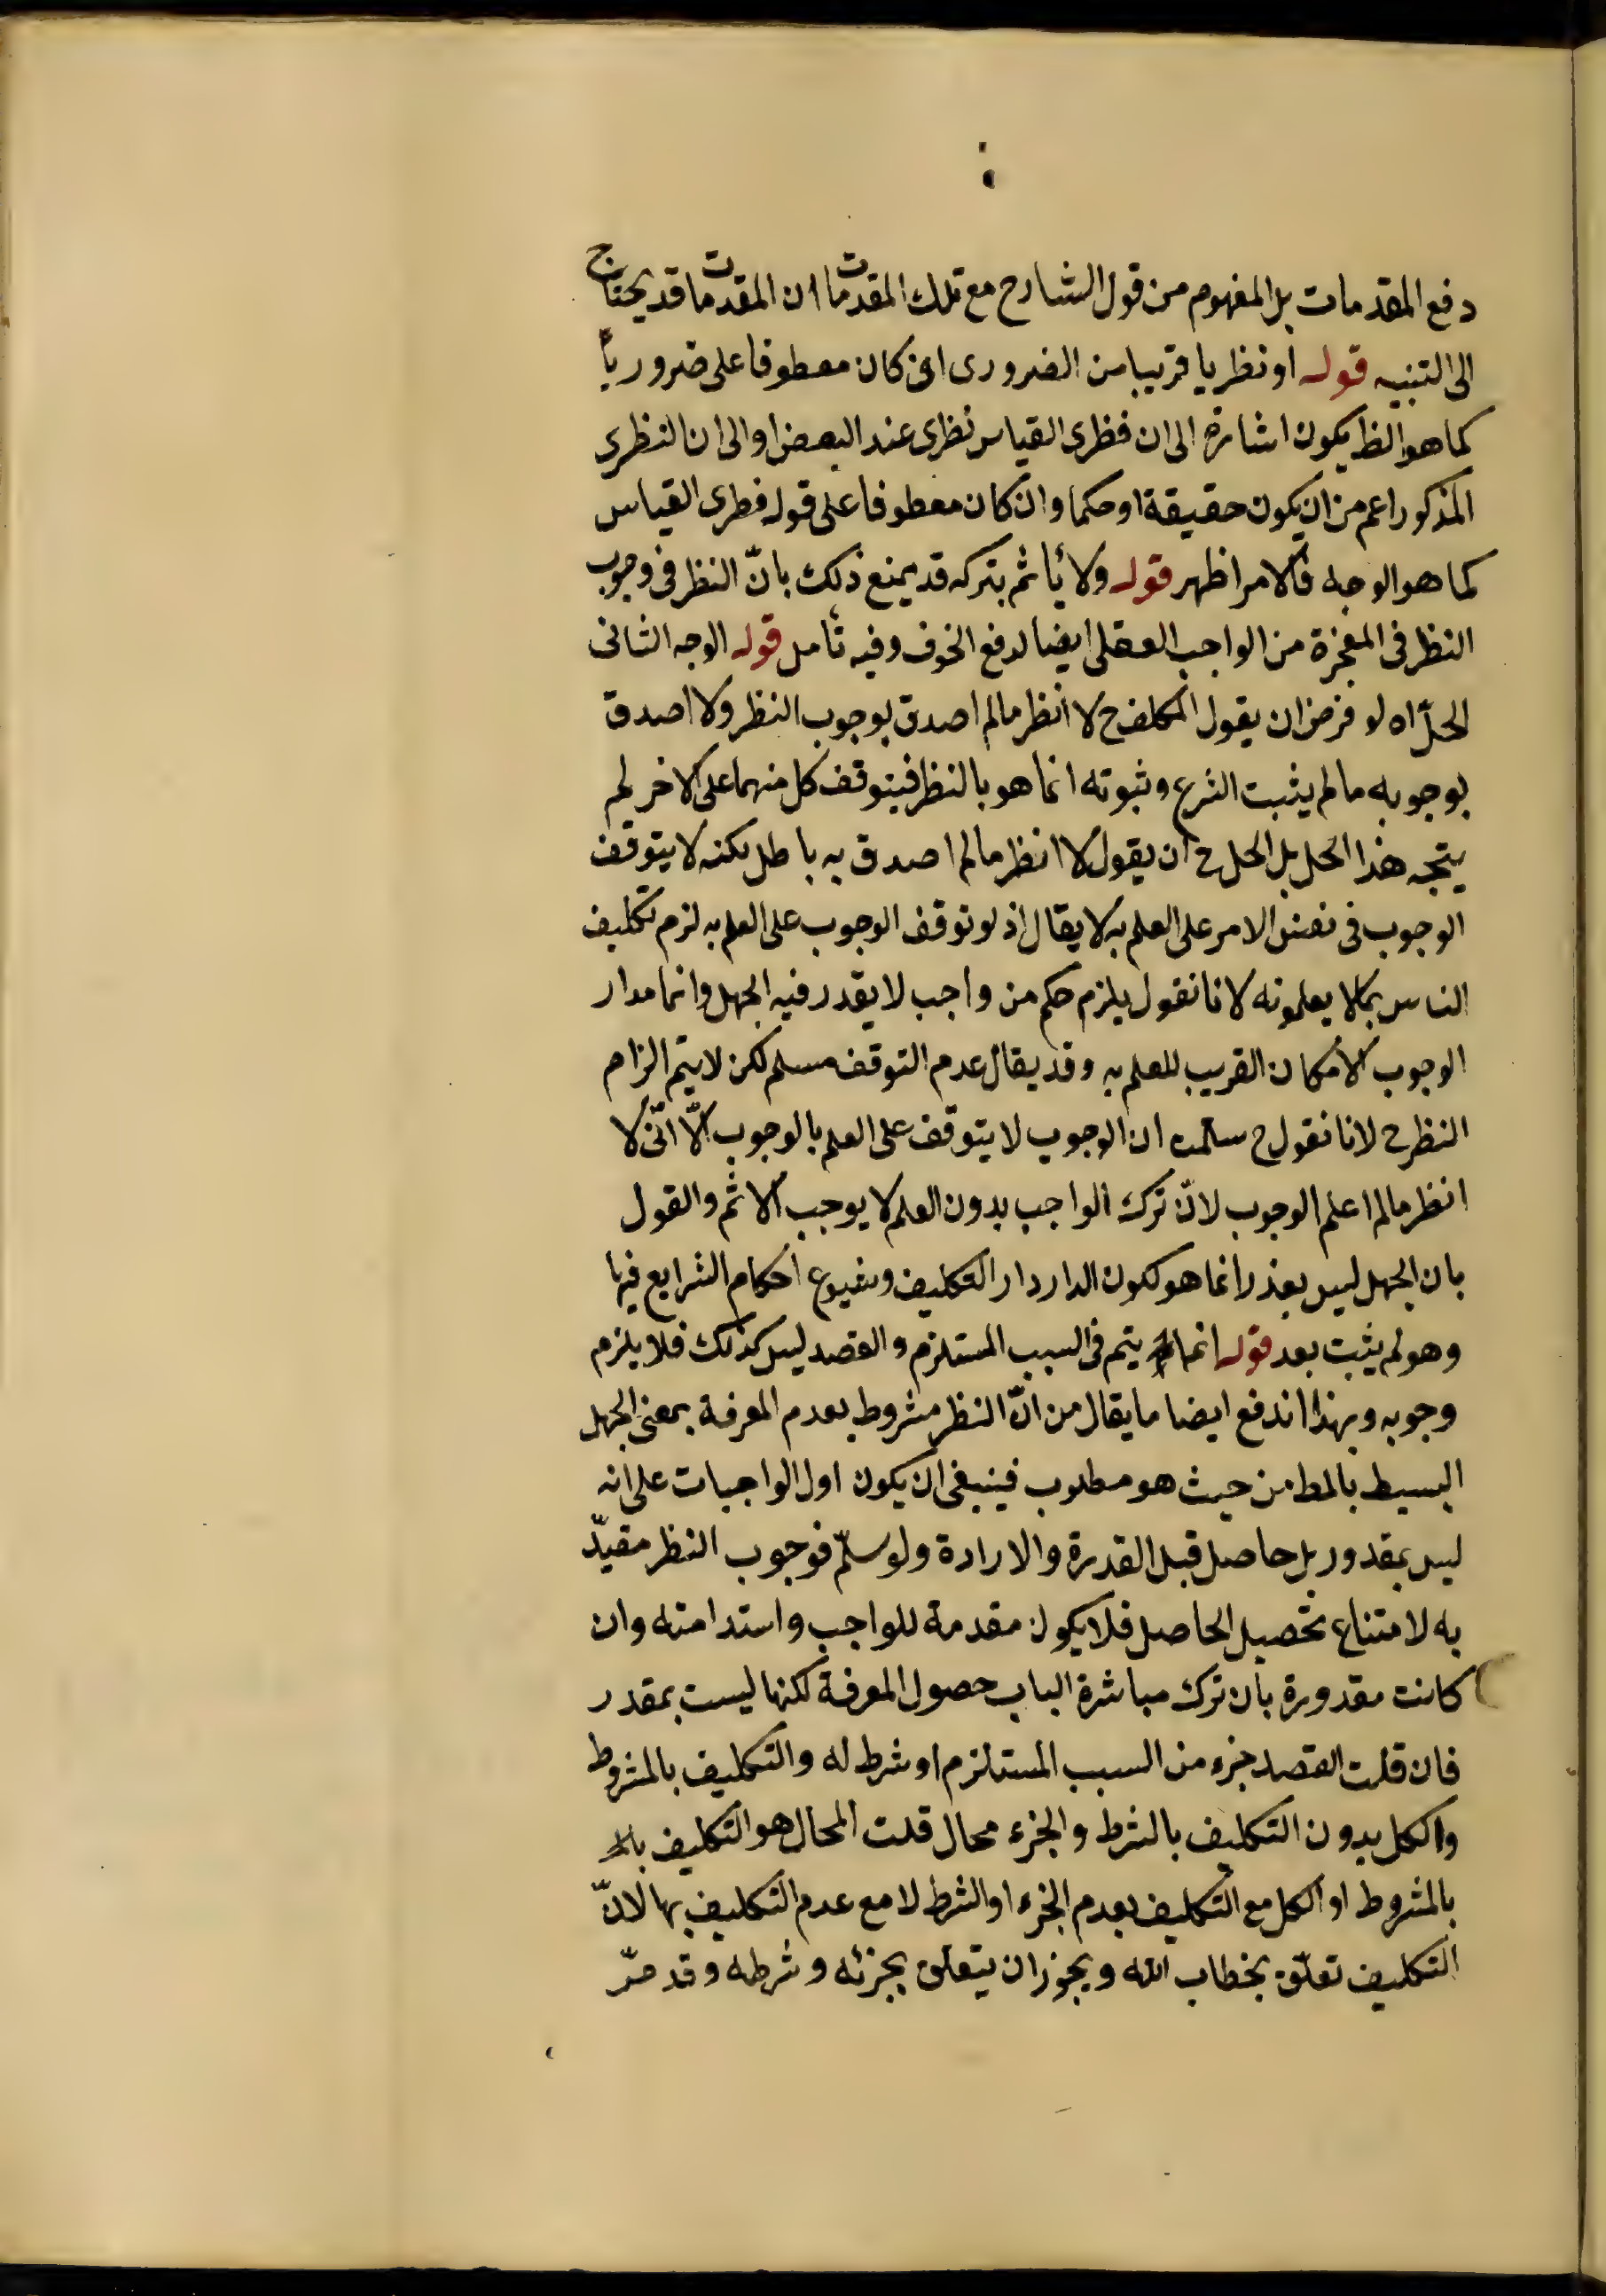 دفع المقدمات بل المفهوم من قول الشارح مع تلك المقدمات ان المقدمات قد يحتاج
الى التنبيه قوله او نظريا قريبا من الضرورى ان كان معطوفا على ضروريا
كما هو الظ يكون اشارة الى ان فطرى القياس نظرى عند البعض او الى ان النظرى
المذكور اعم من ان يكون حقيقة او حكما وان كان معطوفا على قوله فطرى القياس
كما هو الوجه فالامر اظهر قوله ولا يأثم بتركه قد يمنع ذلك بانّ النظر فى وجوب
النظر فى المعجزة من الواجب العقلى ايضا لدفع الخوف وفيه تأمل قوله الوجه الثانى
الحلّ اه لو فرض ان يقول المكلف ح لا انظر مالم اصدق بوجوب النظر ولا اصدق
بوجوبه مالم يثبت الشرع وثبوته انما هو بالنظر فيتوقف كل منهما على الاخر لم
يتجه هذا الحل بل الحل ح ان يقول لا انظر مالم اصدق به باطل لكنه لا يتوقف
الوجوب فى نفس الامر على العلم به لا يقال اذ لو توقف الوجوب على العلم به لزم تكليف
الناس بما لا يعلمونه لانا نقول يلزم حكم من واجب لا يقدر فيه الجهل وانما مدار
الوجوب الامكان القريب للعلم به وقد يقال عدم التوقف مسلم لكن لا يتم الزام
النظر ح لانا نقول ح سلمت ان الوجوب لا يتوقف على العلم بالوجوب الّا انّى لا
انظر مالم اعلم الوجوب لانّ ترك الواجب بدون العلم لا يوجب الاثم والقول
بان الجهل ليس بعذر انما هو لكون الدار دار التكليف وشيوع احكام الشرايع فيها
وهو لم يثبت بعد قوله انما يتم فى السبب المستلزم والقصد ليس كذلك فلا يلزم
وجوبه وبهذا اندفع ايضا ما يقال من انّ النظر مشروط بعدم المعرفة بمعنى الجهل
البسيط بالمط من حيث هو مطلوب فينبغى ان يكون اول الواجبات على انه
ليس بمقدور بل حاصل قبل القدرة والارادة ولو سلّم فوجوب النظر مقيّد
به لامتناع تحصيل الحاصل فلا يكون مقدمة للواجب واستدامته وان
كانت مقدورة بان ترك مباشرة الباب حصول المعرفة لكنها ليست بمقدر
فان قلت القصد جزء من السبب المستلزم او شرط له والتكليف بالمشروط
والكل بدون التكليف بالشرط والجزء محال قلت المحال هو التكليف
بالمشروط او الكل مع التكليف بعدم الجزء او الشرط لا مع عدم التكليف بها لانّ
التكليف تعلّق بخطاب الله ويجوز ان يتعلق بجزئه وشرطه وقد مرّ